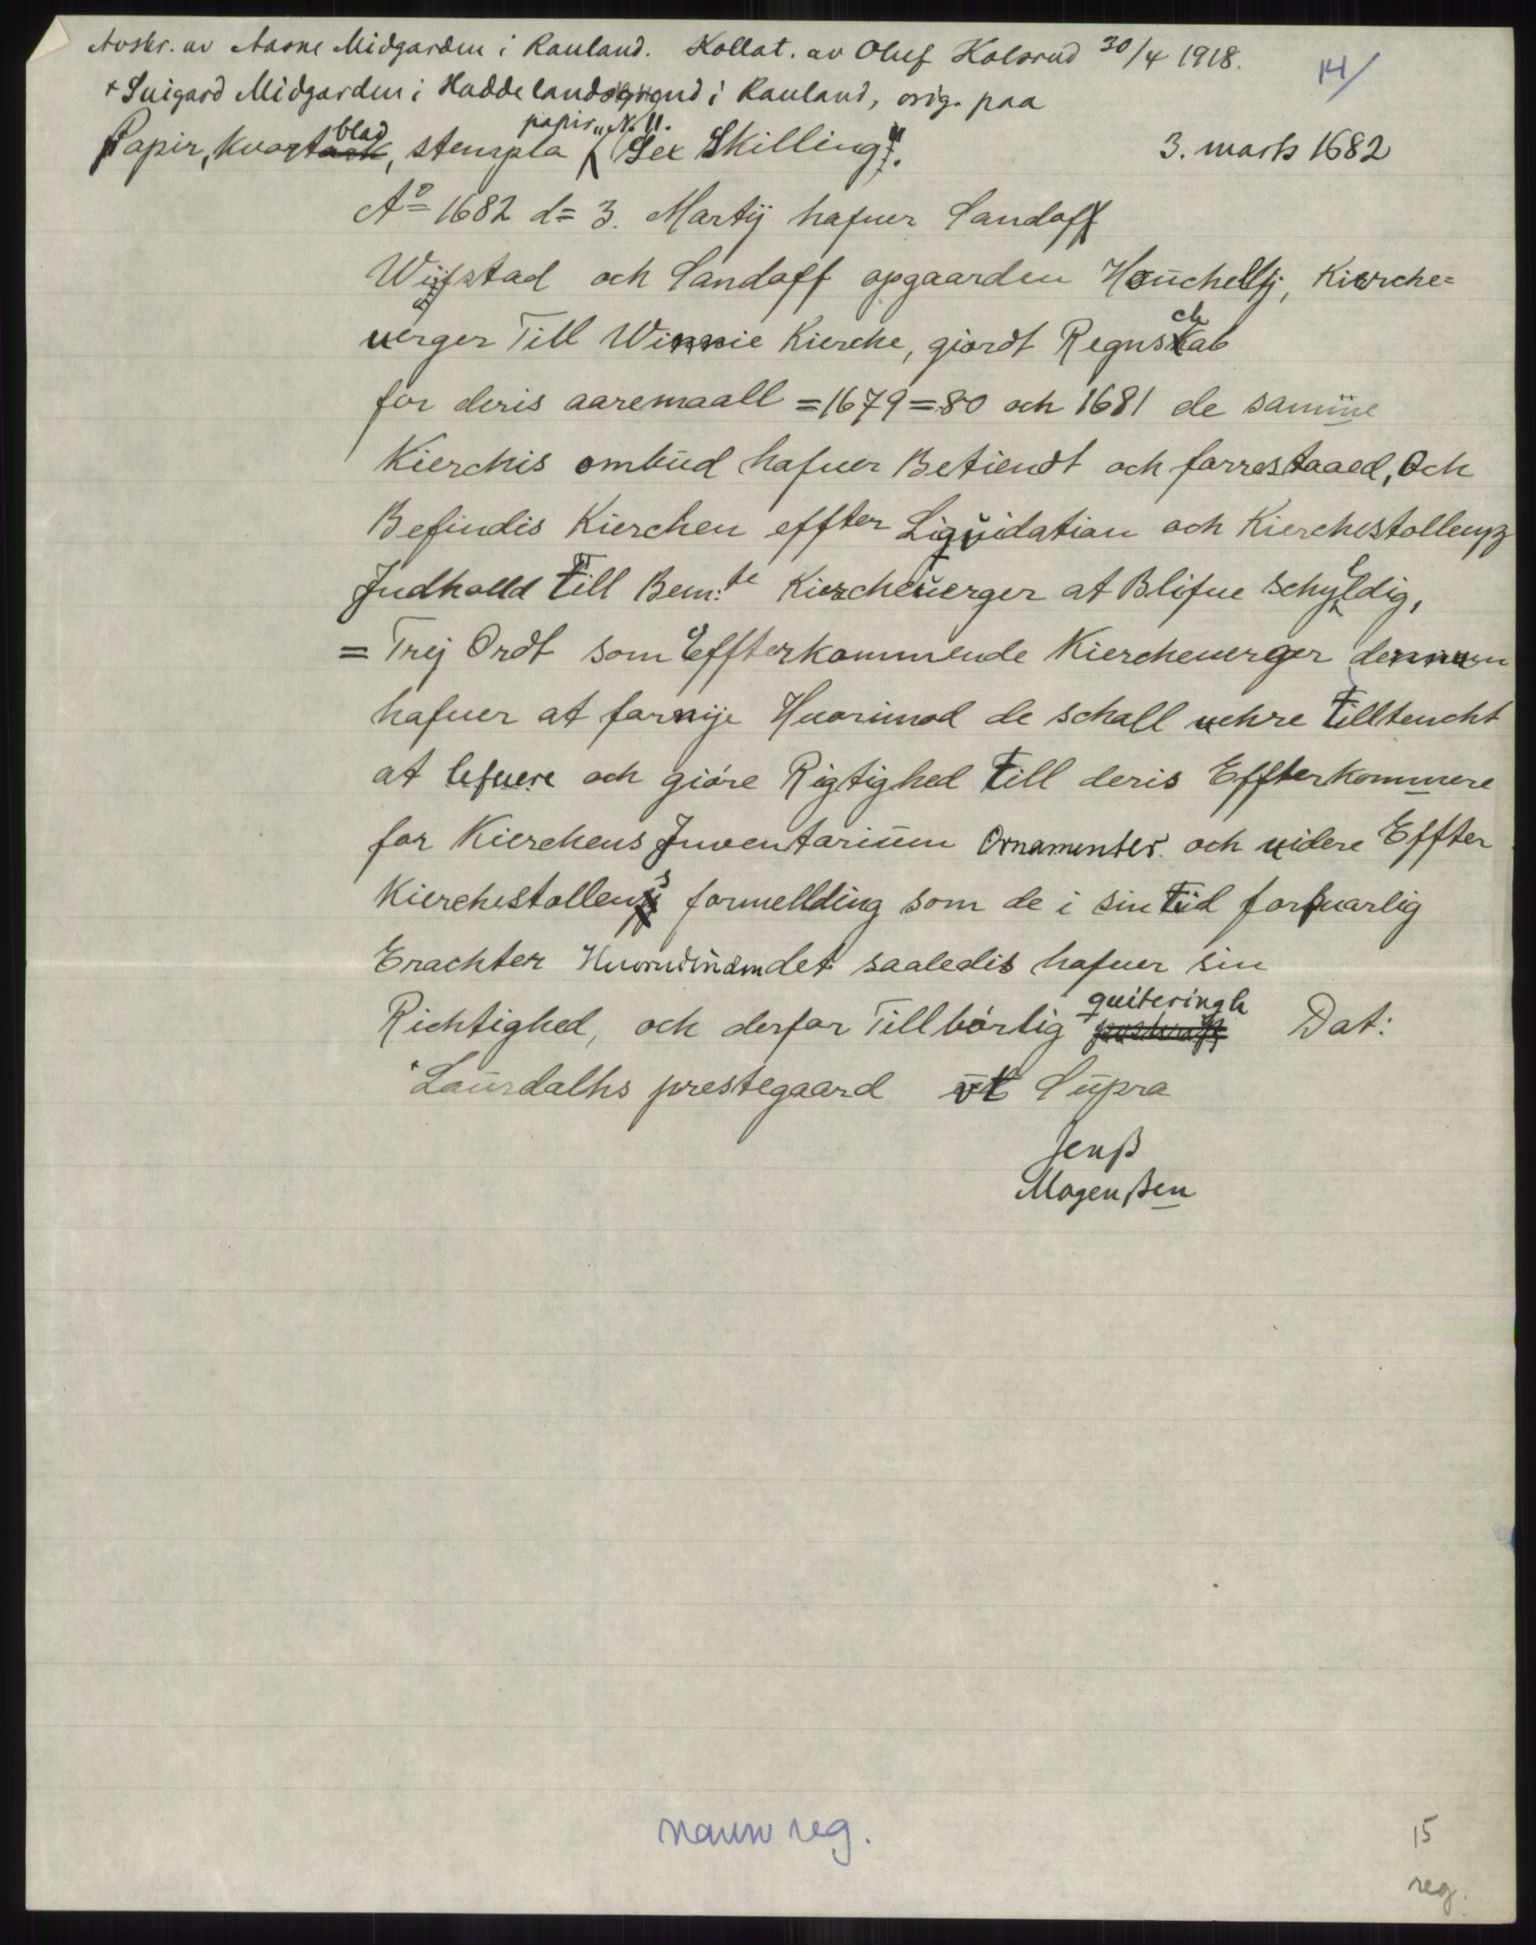 Avskr. av Aasne Midgarden i Rauland. Kollat. av Oluf Kolsrud 30/4 1918.
14/
+ Suigard Midgarden i Haddelandsgrend i Rauland, orig. paa
Papir, kvartark blad, stempla papir „N. 11. Sex Skilling".
3. marts 1682
A° = 1682 d = 3. Martij hafuer Sandoff
Wijstad och Sandoff opgaarden Houchellj, Kierche=
uerger Till Winnie Kierche, giordt Regnschab
for deris aaremaall = 1679 = 80 och 1681 de samme
Kierchis ombud hafuer Betiendt och forrestaaed, Och
Befindis Kierchen effter Liqvidation och Kierchestollens
Indhold Till Bem:te Kiercheuerger at Blifue schyldig,
= Trej Ordt som Effterkommende Kiercheuerger dennem
hafuer at fornije Huorimod de schall uehre Tilltencht
at lefuere och gióre Rigtighed Till deris Effterkommere
for Kierchens Inventarium Ornamenter och uidere Effter
Kierchestollens formellding som de i sin Tid forsuarlig
Erachter det saaledis hafuer sin
Richtighed, och derfor Tillbórlig quiteringh Dat:
Laurdalhs prestegaard ut Supra
Jenß
Mogenßen
navn reg.
15
reg.